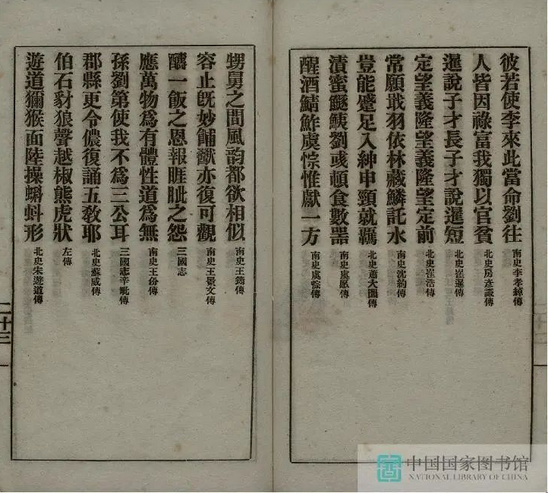 彼若使李來此當命劉往 南史李孝綽傳
人皆因祿富我獨以官貧 北史房彥謙傳
暹說子才長子才說暹短 北史崔暹傳
定望義隆望義隆望定前 北史崔浩傳
常願戢羽依林藏鱗託水 南史沈約傳
豈能蹙足入絆申頸就羈 北史蕭大圜傳
漬蜜鱁鮧劉彧頓食數器 南史虞愿傳
醒酒鯖鮓虞悰惟獻一方 南史虞悰傳
甥舅之間風韵都欲相似 南史王筠傳
容止旣妙餔歠亦復可觀 南史王景文傳
醻一飯之恩報睚眦之怨 三國志
應萬物爲有體性道爲無 南史王份傳
孫劉第使我不爲三公耳 三國志辛毗傳
郡縣更令儂復誦五敎耶 北史蘇威傳
伯石豺狼聲越椒熊虎狀 左傳
遊道獼猴面陸操蝌蚪形 北史宋遊道傳
二十三
中国国家图书馆
NATIONAL LIBRARY OF CHINA